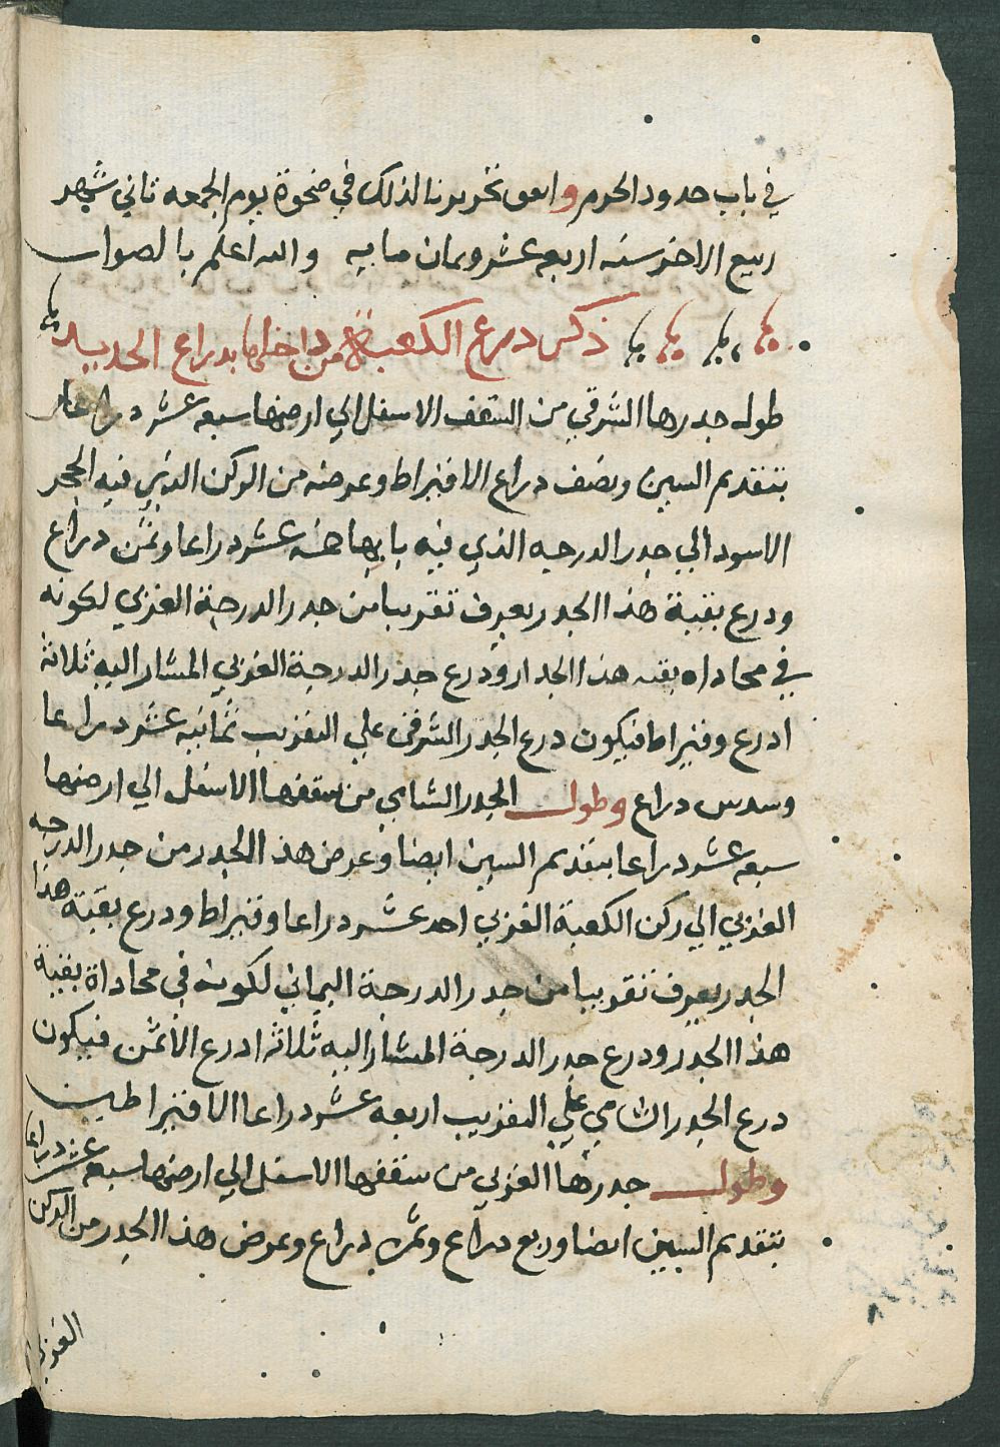 في باب حدود الحرم واتفق تحريرنا لذلك في ضحوة يوم الجمعه ثاني شهر
ربيع الاخر سنه اربعه عشر وثمان مايه والله اعلم بالصواب
ذكر درع الكعبة من داخلها بدراع الحديد
طول جدرها الشرقي من السقف الاسفل الي ارضها سبعه عشر دراعا
بتقديم السين ونصف دراع الا قيراط وعرضه من الركن الذي فيه الحجر
الاسود الي جدر الدرجه الذي فيه بابها خمسه عشر دراعا وثمن دراع
ودرع بقية هذا الجدر يعرف تقريبا من جدر الدرجة الغربي لكونه
في محاداه بقيه هذا الجدار ودرع جدر الدرجة الغربي المشار اليه ثلاثة
ادرع وقيراطا فيكون درع الجدر الشرقي علي التقريب ثمانيه عشر دراعا
وسدس دراع وطول الجدر الشامي من سقفها الاسفل الي ارضها
سبعه عشر دراعا بتقديم السين ايضا وعرض هذا الجدر من جدر الدرجه
الغربي الي ركن الكعبة الغربي احد عشر دراعا وقيراط ودرع بقية هذا
الجدر يعرف تقريبا من جدر الدرجة اليماني لكونه في محاداة بقية
هذا الجدر ودرع جدر الدرجة المشار اليه ثلاثة ادرع الا ثمن فيكون
درع الجدر الشامي علي التقريب اربعه عشر دراعا الا قيراطين
وطول جدرها الغربي من سقفها الاسفل الي ارضها سبعه عشر دراعا
بتقديم السين ايضا وربع دراع وثمن دراع وعرض هذا الجدر من الركن
الغربي